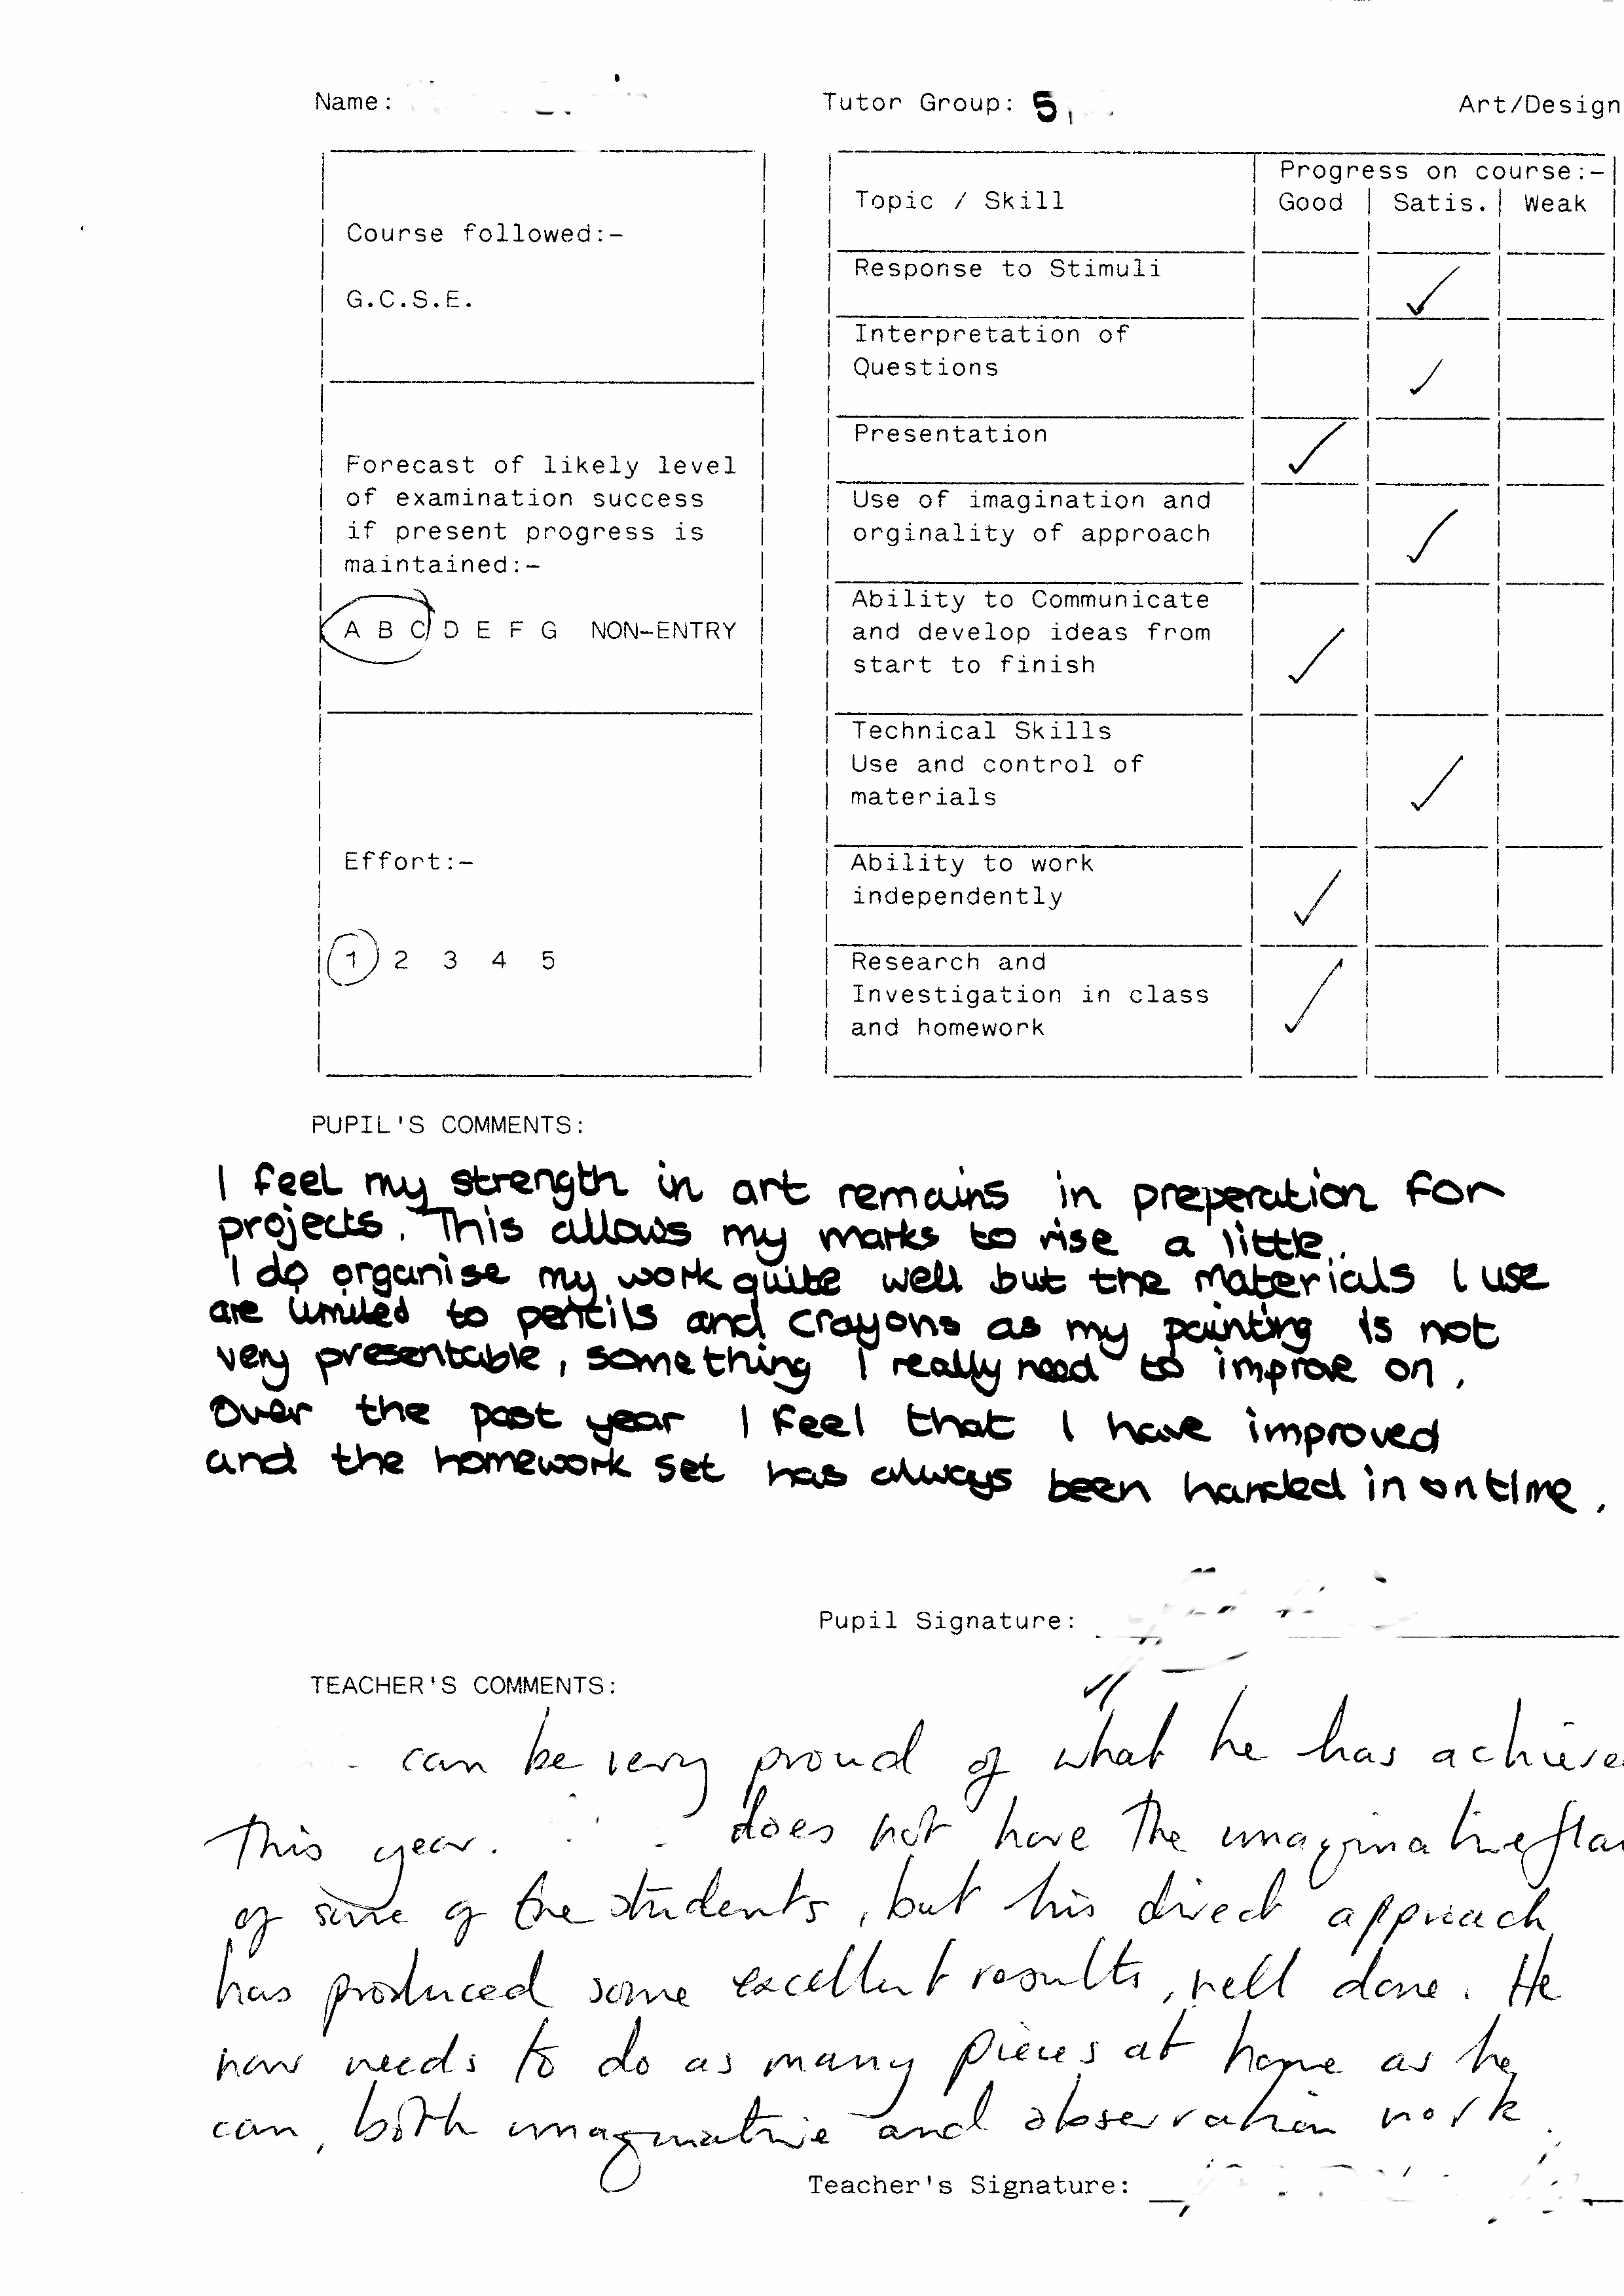 Name: Tutor Group: 5 Art/Design
Progress on course:-
Topic / Skill Good Satis. Weak
Course followed:-
Response to Stimuli
G.C.S.E.
Interpretation of
Questions
Presentation
Forecast of likely level
of examination success
if present progress is
maintained:-
Use of imagination and
orginality of approach
A B C D E F G NON-ENTRY
Ability to Communicate
and develop ideas from
start to finish
Technical Skills
Use and control of
materials
Effort:-
Ability to work
independently
1 2 3 4 5
Research and
Investigation in class
and homework
PUPIL'S COMMENTS:
I feel my strength in art remains in preperation for
projects. This allows my marks to rise a little.
I do organise my work quite well but the materials I use
are limited to pencils and crayons as my painting is not
very presentable, something I really need to improve on.
Over the past year I feel that I have improved
and the homework set has always been handed in on time.
Pupil Signature:
TEACHER'S COMMENTS:
can be very proud of what he has achieve
This year. does not have the imaginative fla
of some of the students, but his direct approach
has produced some excellent results, well done. He
now needs to do as many pieces at home as he
can, both imaginative and observation work.
Teacher's Signature: